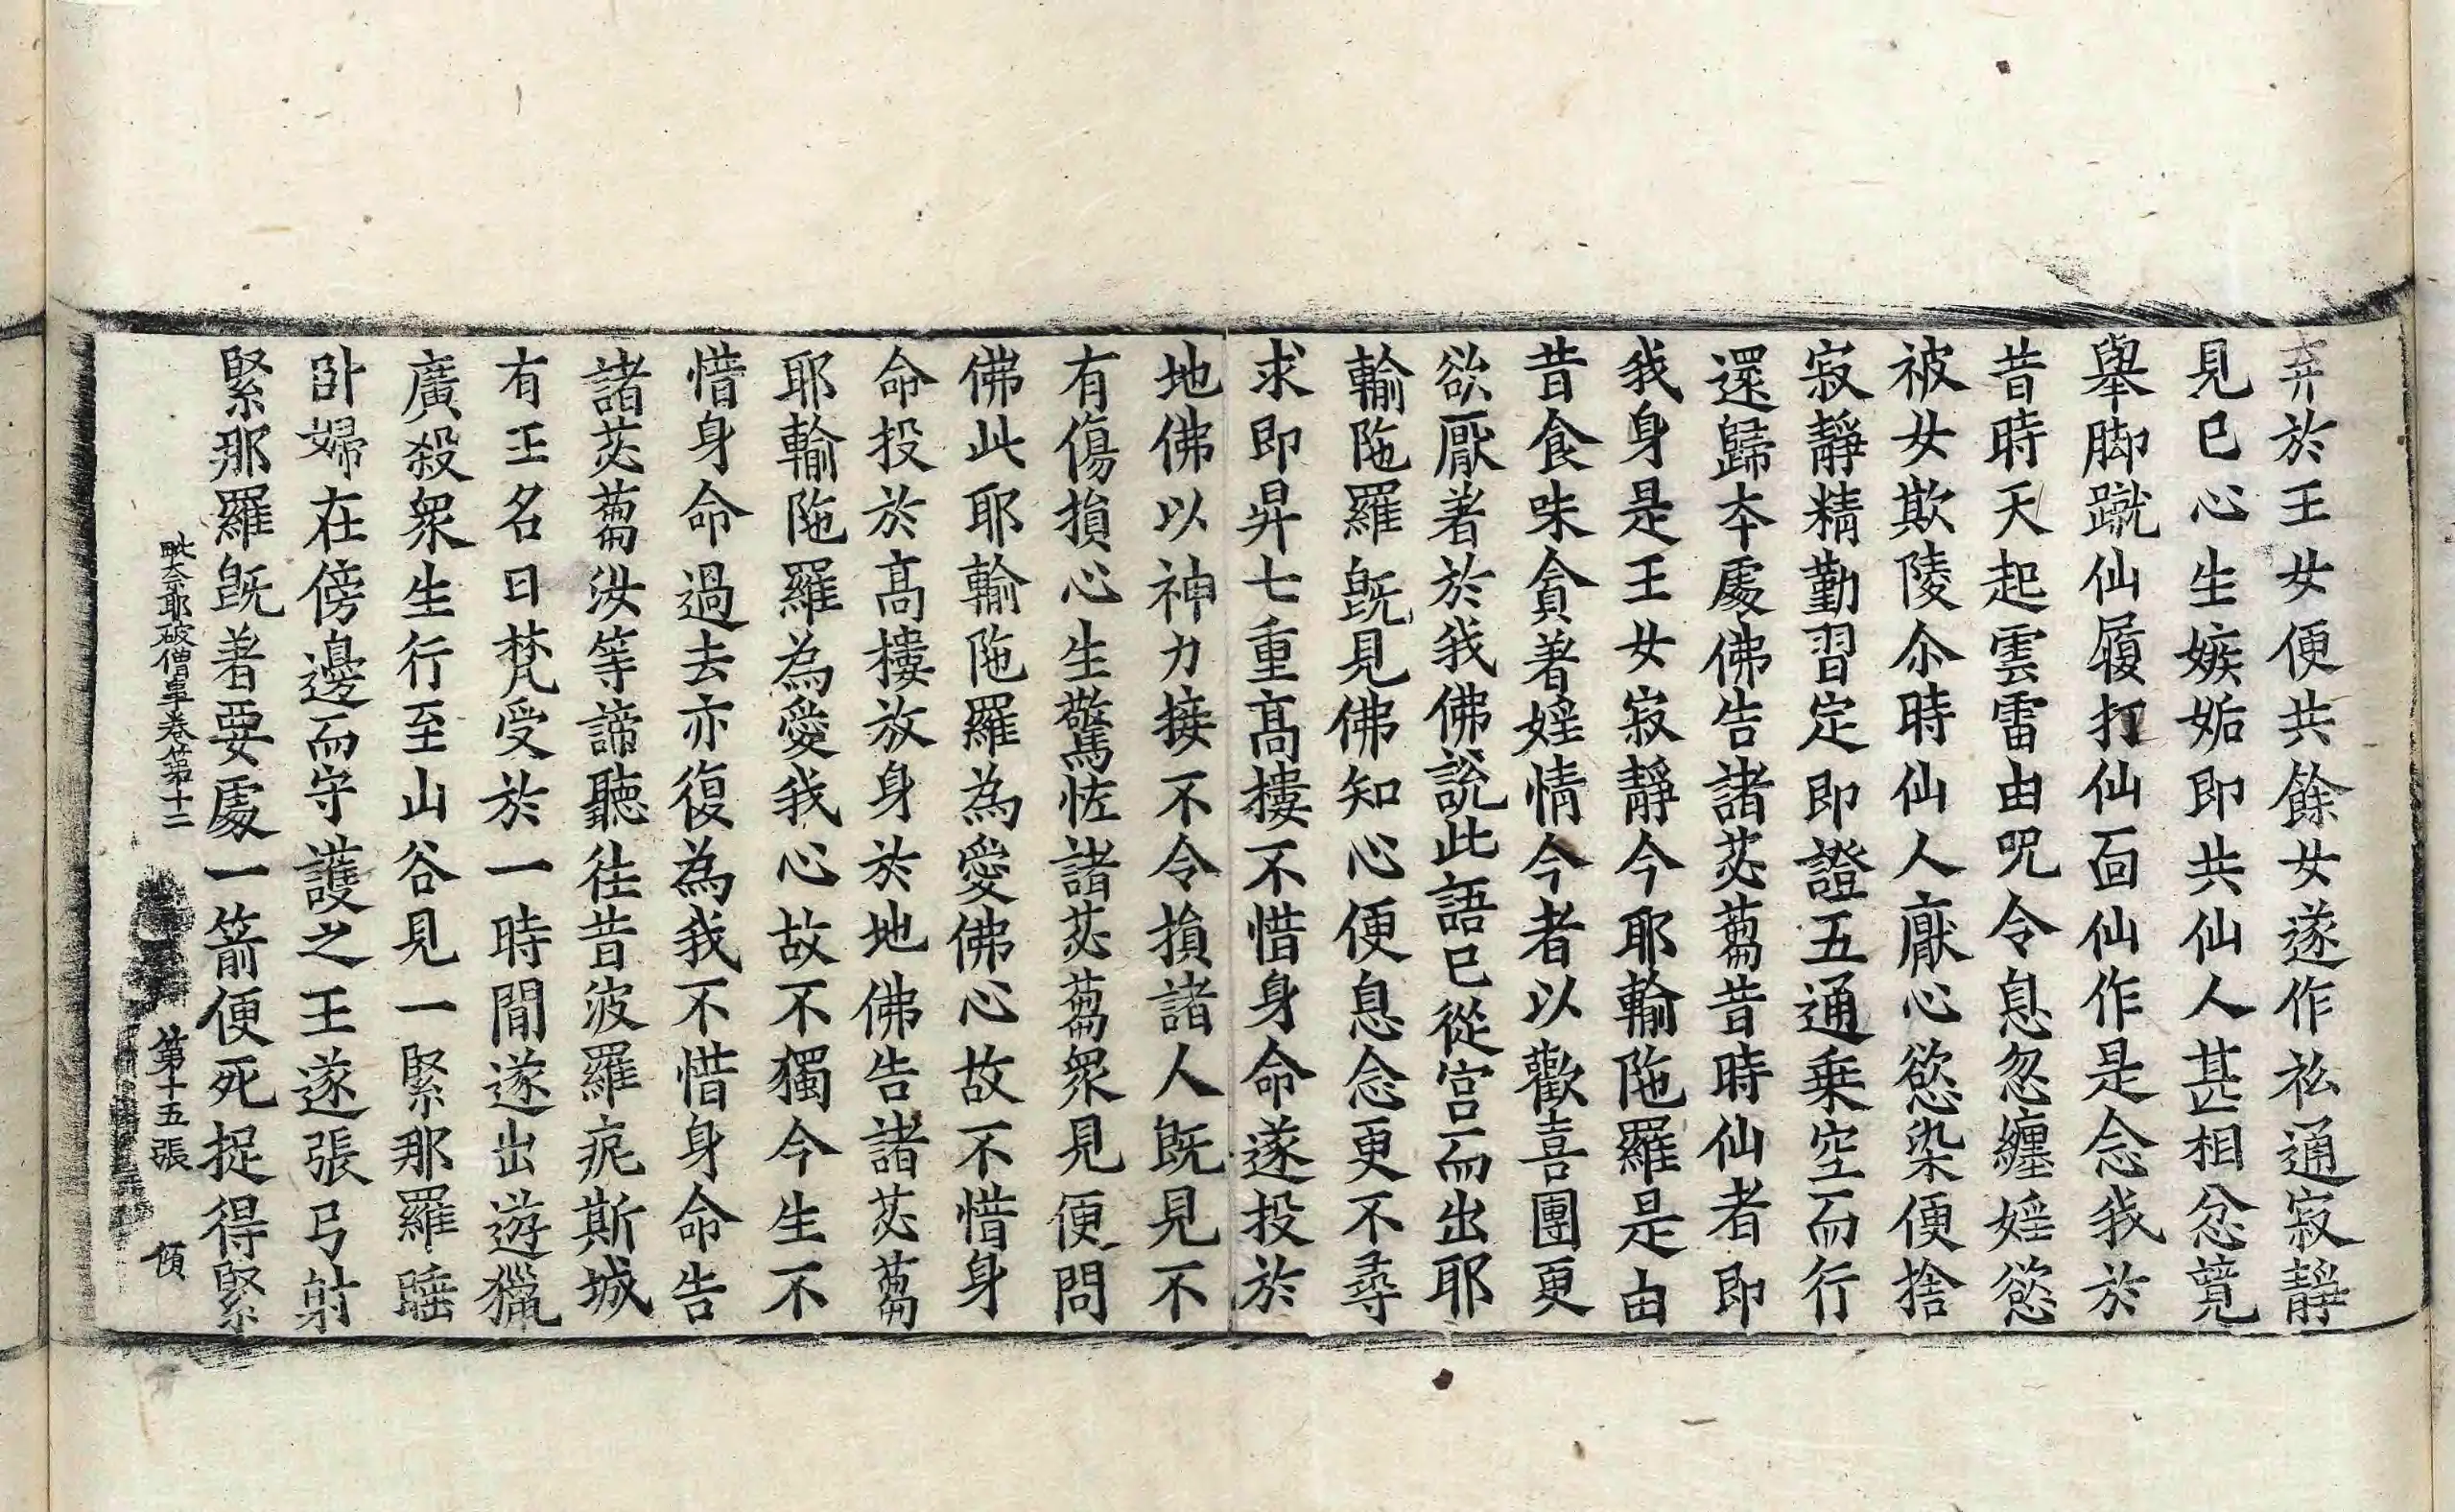 弃於王女便共餘女遂作私通寂靜
見已心生嫉妬即共仙人甚相忿競
舉脚蹴仙履打仙面仙作是念我於
昔時天起雲雷由呪令息忽纏婬慾
被女欺陵尒時仙人厭心慾染便捨
寂靜精勤習定即證五通乗空而行
還歸本處佛告諸苾蒭昔時仙者即
我身是王女寂靜今耶輸陁羅是由
昔食味貪著婬情今者以歡喜團更
欲厭著於我佛說此語已從宫而出耶
輸陁羅旣見佛知心便息念更不尋
求即昇七重髙樓不惜身命遂投於
地佛以神力接不令損諸人旣見不
有傷損心生驚恠諸苾蒭衆見便問
佛此耶輸陁羅為愛佛心故不惜身
命投於髙樓放身於地佛告諸苾蒭
耶輸陁羅為愛我心故不獨今生不
惜身命過去亦復為我不惜身命告
諸苾蒭汝等諦聽徃昔波羅痆斯城
有王名曰梵受於一時間遂出遊獵
廣殺衆生行至山谷見一緊那羅睡
卧婦在傍邊而守護之王遂張弓射
緊那羅旣著要處一箭便死捉得緊
毗奈耶破僧事卷第十二 第十五張 傾